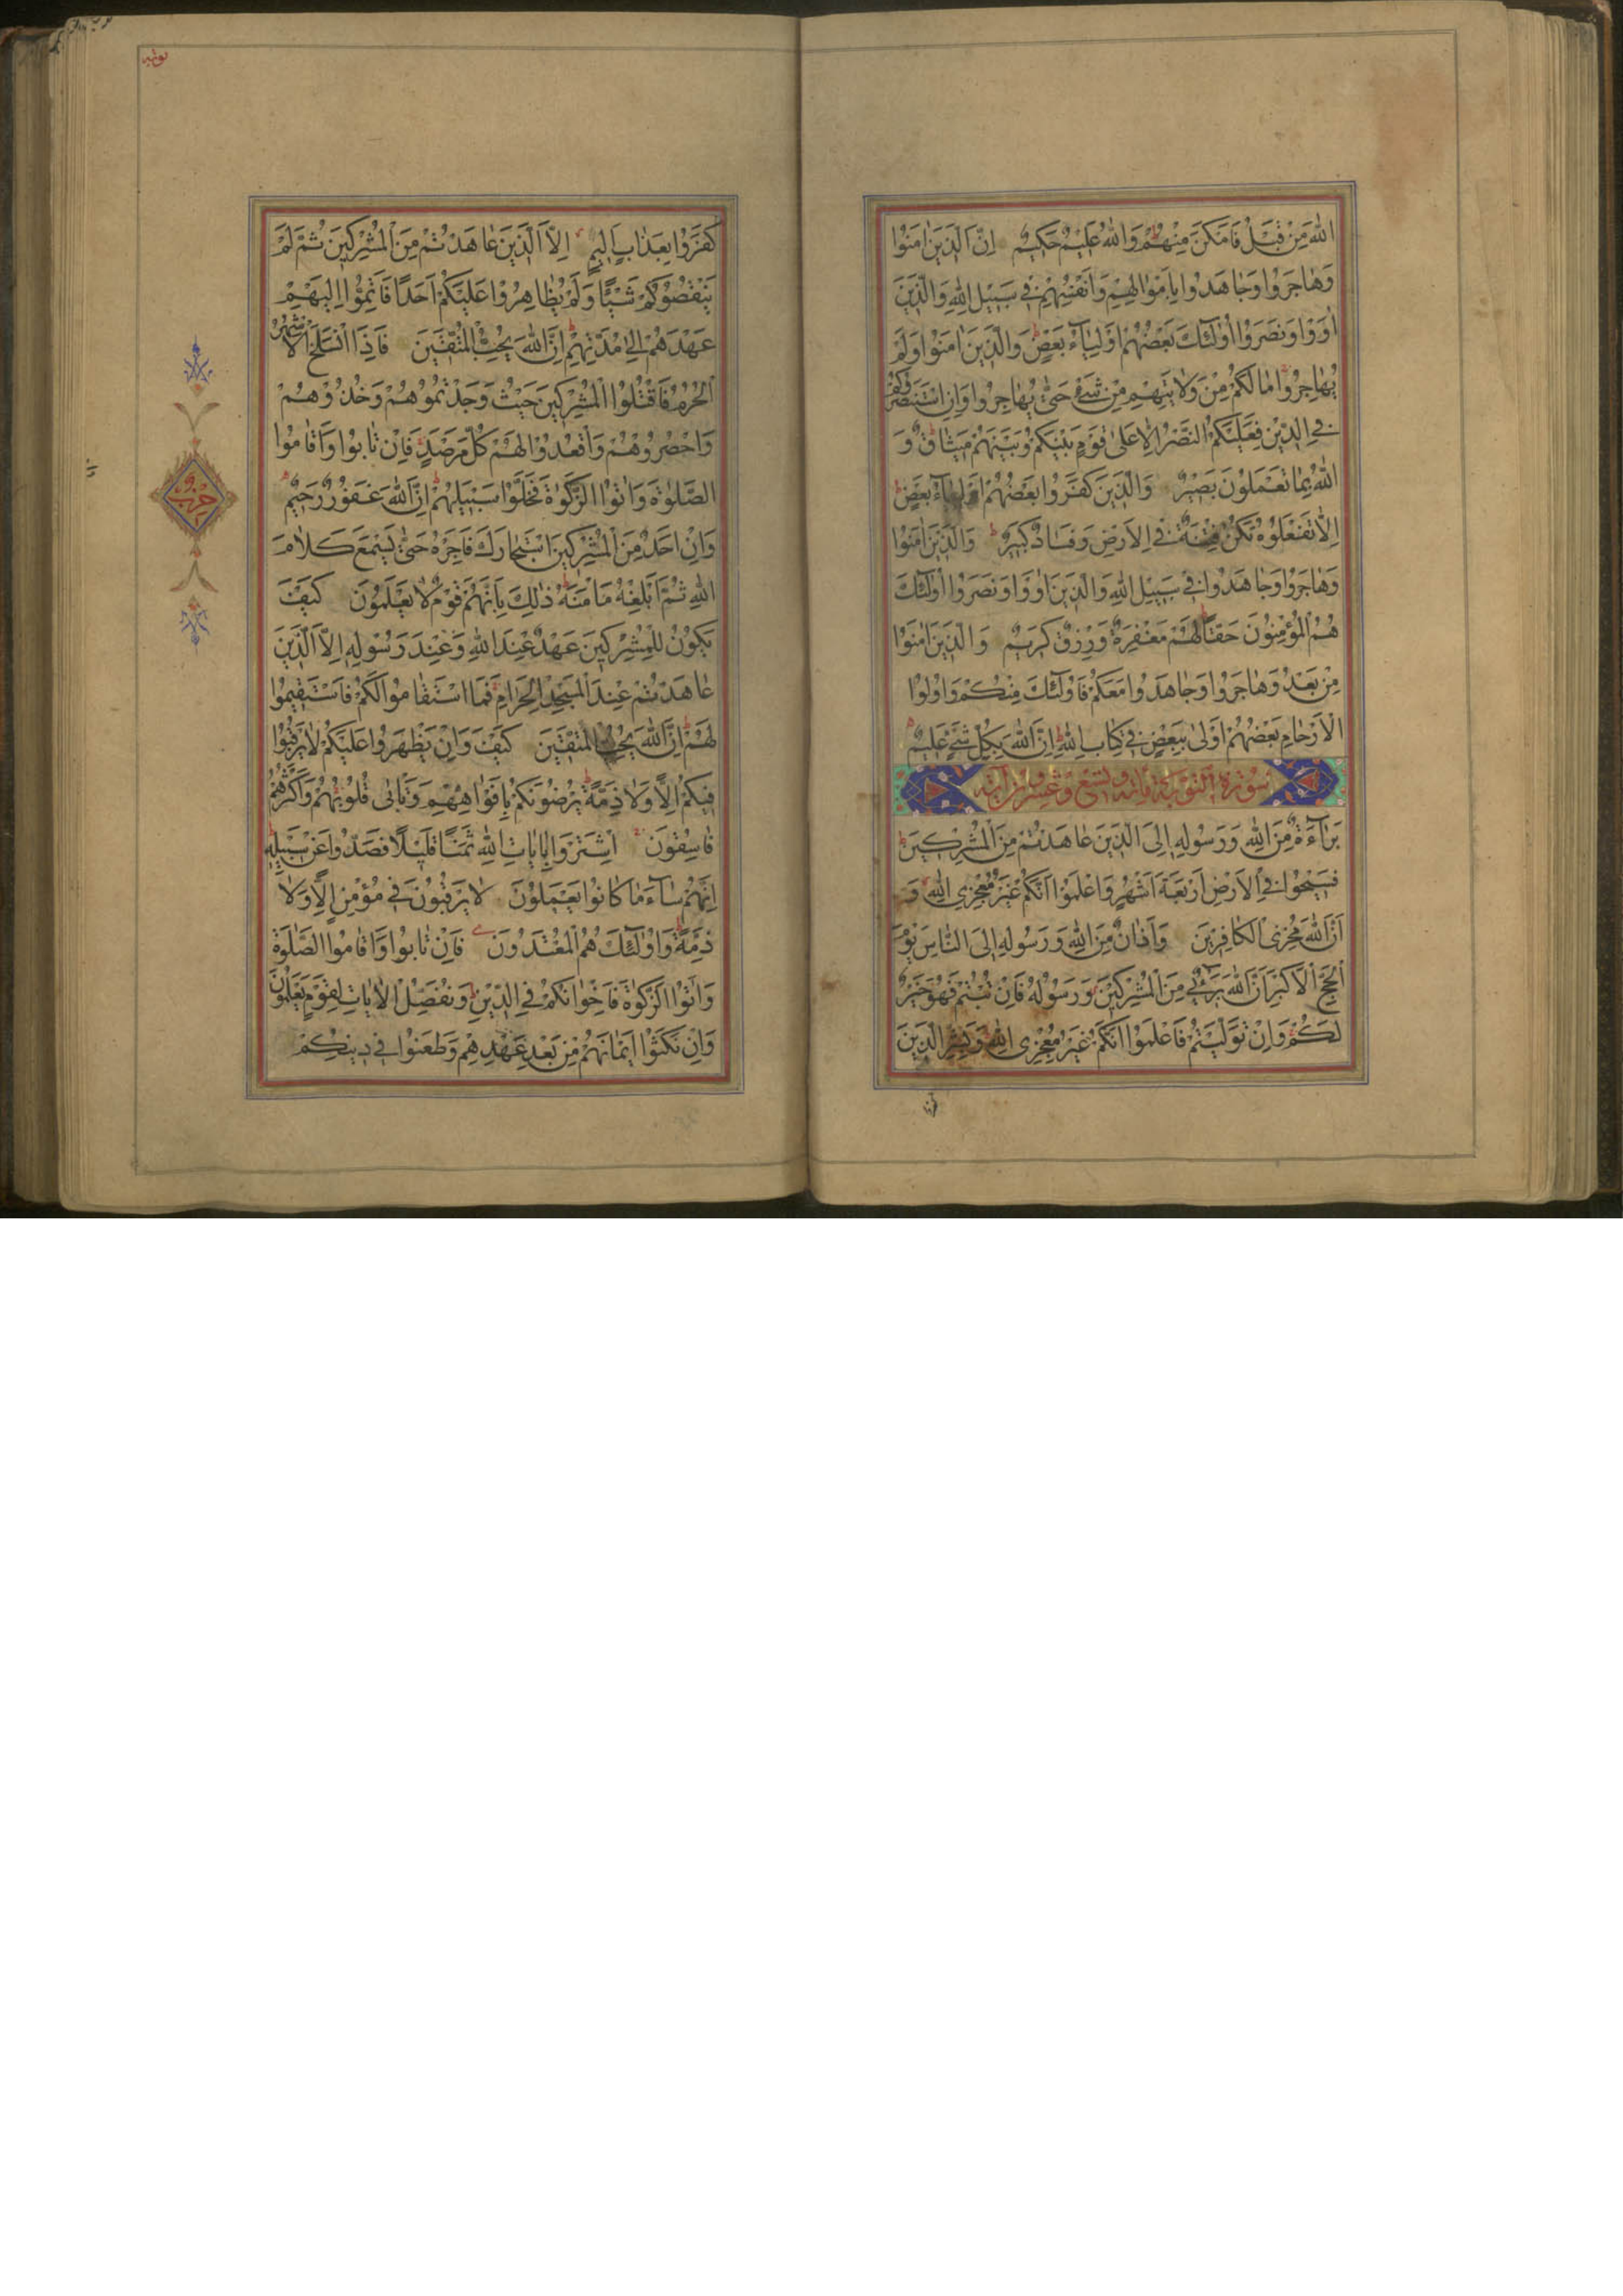 اللهَ مِنْ قَبْلُ فَاَمْكَنَ مِنْهُمْ وَاللهُ عَلِيمٌ حَكِيمٌ اِنَّ الَّذِينَ اٰمَنُوا
وَهَاجَرُوا وَجَاهَدُوا بِاَمْوَالِهِمْ وَاَنْفُسِهِمْ فِي سَبِيلِ اللهِ وَالَّذِينَ
اٰوَوْا وَنَصَرُوا اُولٰئِكَ بَعْضُهُمْ اَوْلِيَاءُ بَعْضٍ وَالَّذِينَ اٰمَنُوا وَلَمْ
يُهَاجِرُوا مَالَكُمْ مِنْ وَلَايَتِهِمْ مِنْ شَيْءٍ حَتّٰى يُهَاجِرُوا وَاِنِ اسْتَنْصَرُوكُمْ
فِي الدِّينِ فَعَلَيْكُمُ النَّصْرُ اِلَّا عَلٰى قَوْمٍ بَيْنَكُمْ وَبَيْنَهُمْ مِيثَاقٌ وَ
اللهُ بِمَا تَعْمَلُونَ بَصِيرٌ وَالَّذِينَ كَفَرُوا بَعْضُهُمْ اَوْلِيَاءُ بَعْضٍ
اِلَّا تَفْعَلُوهُ تَكُنْ فِتْنَةٌ فِي الْاَرْضِ وَفَسَادٌ كَبِيرٌ وَالَّذِينَ اٰمَنُوا
وَهَاجَرُوا وَجَاهَدُوا فِي سَبِيلِ اللهِ وَالَّذِينَ اٰوَوْا وَنَصَرُوا اُولٰئِكَ
هُمُ الْمُؤْمِنُونَ حَقًّا لَهُمْ مَغْفِرَةٌ وَرِزْقٌ كَرِيمٌ وَالَّذِينَ اٰمَنُوا
مِنْ بَعْدُ وَهَاجَرُوا وَجَاهَدُوا مَعَكُمْ فَاُولٰئِكَ مِنْكُمْ وَاُولُوا
الْاَرْحَامِ بَعْضُهُمْ اَوْلٰى بِبَعْضٍ فِي كِتَابِ اللهِ اِنَّ اللهَ بِكُلِّ شَيْءٍ عَلِيمٌ
سورة التوبة مائة وتسع وعشرون آية
بَرَاءَةٌ مِنَ اللهِ وَرَسُولِهِ اِلَى الَّذِينَ عَاهَدْتُمْ مِنَ الْمُشْرِكِينَ
فَسِيحُوا فِي الْاَرْضِ اَرْبَعَةَ اَشْهُرٍ وَاعْلَمُوا اَنَّكُمْ غَيْرُ مُعْجِزِي اللهِ وَ
اَنَّ اللهَ مُخْزِي الْكَافِرِينَ وَاَذَانٌ مِنَ اللهِ وَرَسُولِهِ اِلَى النَّاسِ يَوْمَ
الْحَجِّ الْاَكْبَرِ اَنَّ اللهَ بَرِيءٌ مِنَ الْمُشْرِكِينَ وَرَسُولُهُ فَاِنْ تُبْتُمْ فَهُوَ خَيْرٌ
لَكُمْ وَاِنْ تَوَلَّيْتُمْ فَاعْلَمُوا اَنَّكُمْ غَيْرُ مُعْجِزِي اللهِ وَبَشِّرِ الَّذِينَ
توبة
كَفَرُوا بِعَذَابٍ اَلِيمٍ اِلَّا الَّذِينَ عَاهَدْتُمْ مِنَ الْمُشْرِكِينَ ثُمَّ لَمْ
يَنْقُصُوكُمْ شَيْئًا وَلَمْ يُظَاهِرُوا عَلَيْكُمْ اَحَدًا فَاَتِمُّوا اِلَيْهِمْ
عَهْدَهُمْ اِلٰى مُدَّتِهِمْ اِنَّ اللهَ يُحِبُّ الْمُتَّقِينَ فَاِذَا انْسَلَخَ الْاَشْهُرُ
الْحُرُمُ فَاقْتُلُوا الْمُشْرِكِينَ حَيْثُ وَجَدْتُمُوهُمْ وَخُذُوهُمْ
وَاحْصُرُوهُمْ وَاقْعُدُوا لَهُمْ كُلَّ مَرْصَدٍ فَاِنْ تَابُوا وَاَقَامُوا
الصَّلٰوةَ وَاٰتَوُا الزَّكٰوةَ فَخَلُّوا سَبِيلَهُمْ اِنَّ اللهَ غَفُورٌ رَحِيمٌ
وَاِنْ اَحَدٌ مِنَ الْمُشْرِكِينَ اسْتَجَارَكَ فَاَجِرْهُ حَتّٰى يَسْمَعَ كَلَامَ
اللهِ ثُمَّ اَبْلِغْهُ مَاْمَنَهُ ذٰلِكَ بِاَنَّهُمْ قَوْمٌ لَا يَعْلَمُونَ كَيْفَ
يَكُونُ لِلْمُشْرِكِينَ عَهْدٌ عِنْدَ اللهِ وَعِنْدَ رَسُولِهِ اِلَّا الَّذِينَ
عَاهَدْتُمْ عِنْدَ الْمَسْجِدِ الْحَرَامِ فَمَا اسْتَقَامُوا لَكُمْ فَاسْتَقِيمُوا
لَهُمْ اِنَّ اللهَ يُحِبُّ الْمُتَّقِينَ كَيْفَ وَاِنْ يَظْهَرُوا عَلَيْكُمْ لَا يَرْقُبُوا
فِيكُمْ اِلًّا وَلَا ذِمَّةً يُرْضُونَكُمْ بِاَفْوَاهِهِمْ وَتَاْبٰى قُلُوبُهُمْ وَاَكْثَرُهُمْ
فَاسِقُونَ اِشْتَرَوْا بِاٰيَاتِ اللهِ ثَمَنًا قَلِيلًا فَصَدُّوا عَنْ سَبِيلِهِ
اِنَّهُمْ سَاءَ مَا كَانُوا يَعْمَلُونَ لَا يَرْقُبُونَ فِي مُؤْمِنٍ اِلًّا وَلَا
ذِمَّةً وَاُولٰئِكَ هُمُ الْمُعْتَدُونَ فَاِنْ تَابُوا وَاَقَامُوا الصَّلٰوةَ
وَاٰتَوُا الزَّكٰوةَ فَاِخْوَانُكُمْ فِي الدِّينِ وَنُفَصِّلُ الْاٰيَاتِ لِقَوْمٍ يَعْلَمُونَ
وَاِنْ نَكَثُوا اَيْمَانَهُمْ مِنْ بَعْدِ عَهْدِهِمْ وَطَعَنُوا فِي دِينِكُمْ
حزب